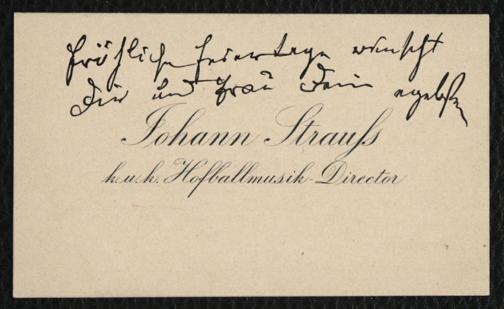 Fröhliche Feiertage wünscht
Dir und Frau Dein ergebener
Johann Strauss
k.u.k. Hofballmusik-Director